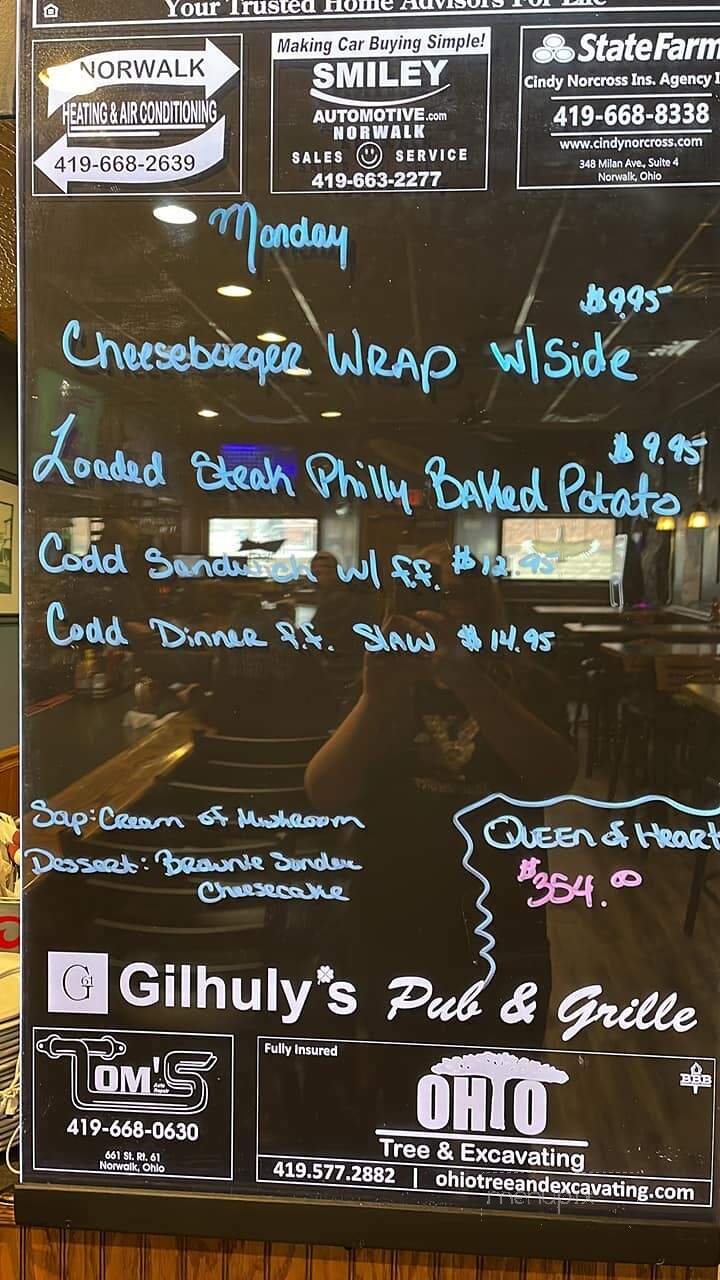 Your Trusted Home Advisors For Life
NORWALK
HEATING & AIR CONDITIONING
419-668-2639
Making Car Buying Simple!
SMILEY
AUTOMOTIVE.com
NORWALK
SALES SERVICE
419-663-2277
StateFarm
Cindy Norcross Ins. Agency I
419-668-8338
www.cindynorcross.com
348 Milan Ave., Suite 4
Norwalk, Ohio
Monday
$9.95
Cheeseburger WRAP w/Side
$9.95
Loaded Steak Philly Baked Potato
Codd Sandwich w/ f.f. $12.95
Codd Dinner f.f. Slaw $14.95
Sop: Cream of Mushroom
Dessert: Brownie Sundae
Cheesecake
Queen of Heart
$354.00
G 61
Gilhuly's Pub & Grille
TOM'S
Auto Repair
419-668-0630
661 St. Rt. 61
Norwalk, Ohio
Fully Insured
BBB
OHIO
Tree & Excavating
419.577.2882 | ohiotreeandexcavating.com
menupix